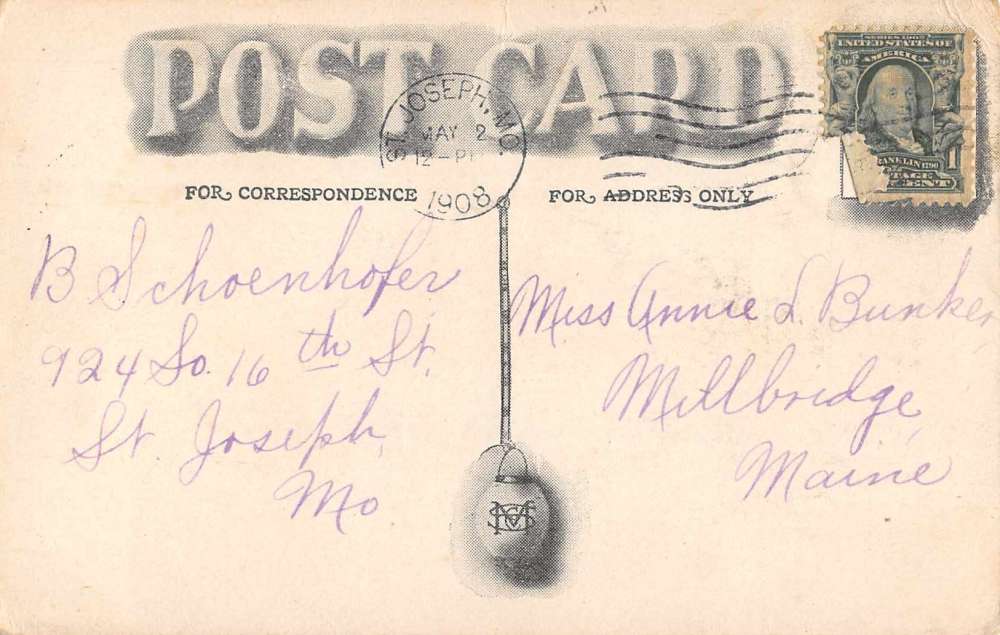 POST CARD
ST. JOSEPH, MO.
MAY 2
12-P
1908
SERIES 1902
UNITED STATES OF
AMERICA
FRANKLIN 1790
1
FOR CORRESPONDENCE
FOR ADDRESS ONLY
B Schoenhofer
924 So. 16th St.
St. Joseph,
Mo.
Miss Annie L. Bunker
Millbridge,
Maine